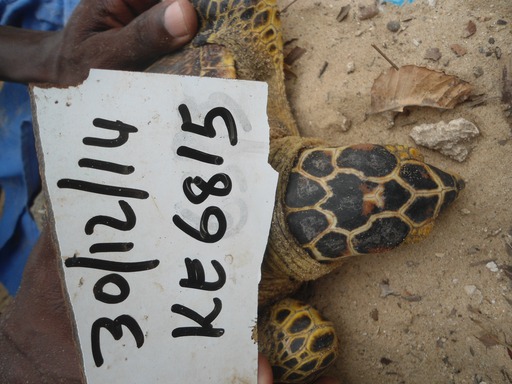 30/12/14
KE6815